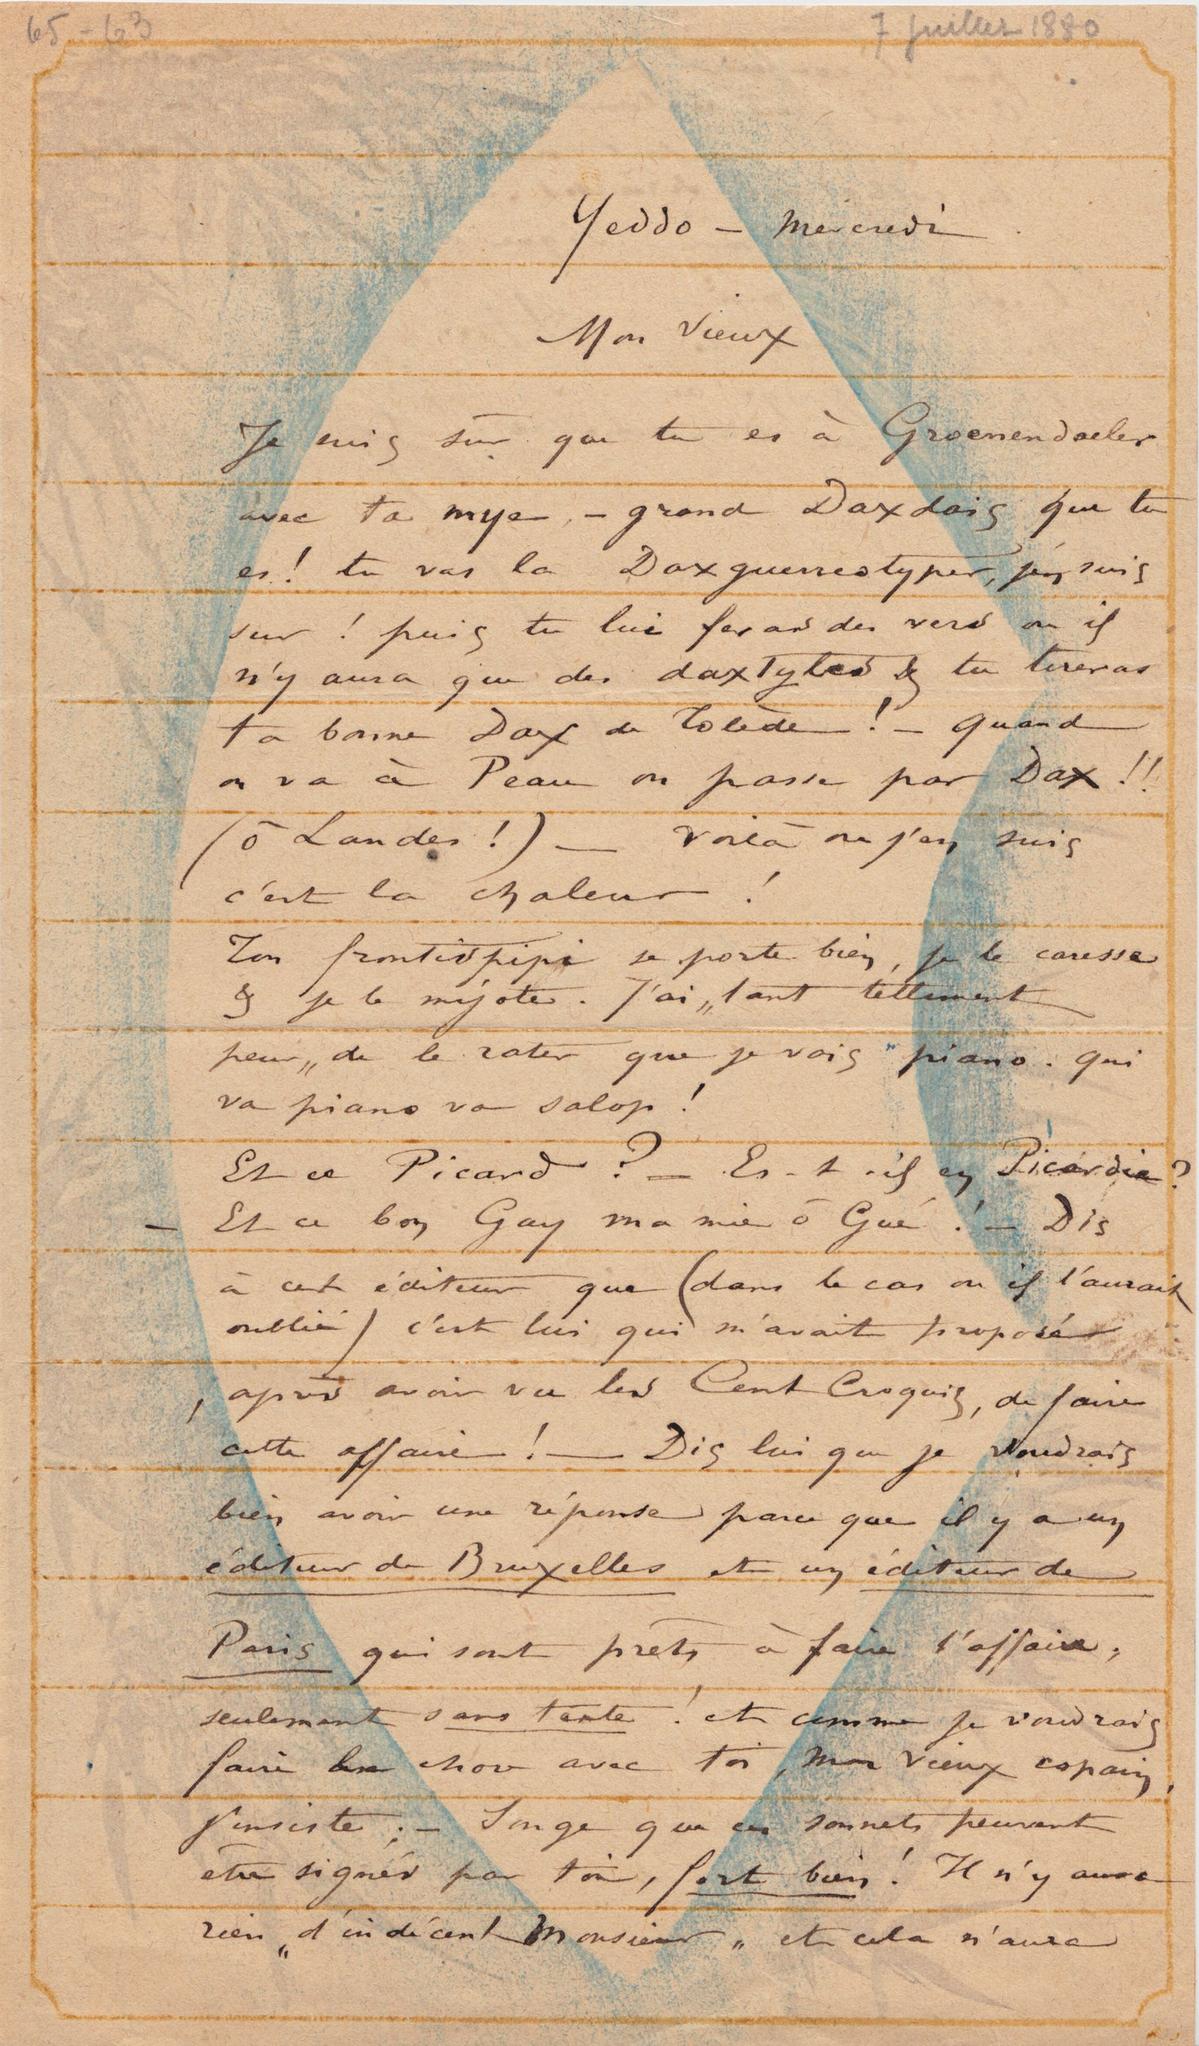 65-63
7 juillet 1880
Yeddo – Mercredi
Mon Vieux
Je suis sûr que tu es à Groenendaeler
avec ta mye, – grand Daxdais que tu
es! tu vas la Daxguerreotyper, j'en suis
sur ! puis tu lui feras des vers ou il
n'y aura que des daxtyles & tu tireras
ta bonne Dax de Tolède ! – quand
on va à Peau on passe par Dax !!
(ô Landes !) – Voilà ou j'en suis
c'est la chaleur !
Ton frontispipi se porte bien, je le caresse
& je le mijote. J'ai „tant tellement
peur„ de le rater que je vais "piano. qui
va piano va salop !
Et ce Picard ? – Es-t-il en Picardie ?
– Et ce bon Gay ma mie ô Gué ! – Dis
à cet éditeur que (dans le cas ou il l'aurait
oublié) c'est lui qui m'avait proposé
, après avoir vu les Cent Croquis, de faire
cette affaire ! – Dis lui que je voudrais
bien avoir une réponse parce que il y a un
éditeur de Bruxelles et un éditeur de
Paris qui sont prêts à faire l'affaire,
seulement sans texte ! et comme je voudrais
faire la chose avec toi, mon vieux copain,
j'insiste ; – Songe que ces sonnets peuvent
être signés par toi, fort bien ! Il n'y aura
rien „d'indécent Monsieur„ et cela n'aura